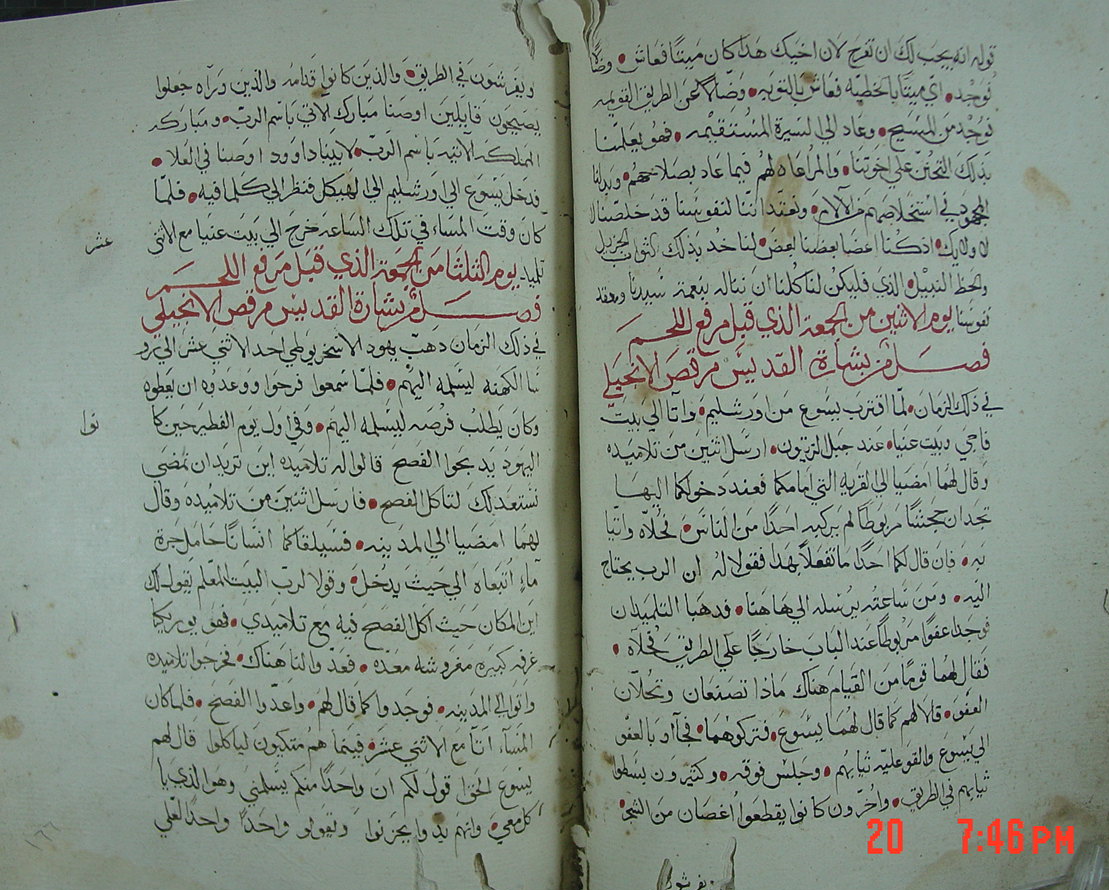 قوله انه يجب لك ان تفرح لان اخيك هذا كان ميتًا فعاش • وضالًا
فوُجد • اي ميتًا بالخطيه فعاش بالتوبه • وضالًا عن الطريق القويمه
فوُجد من المسيح • وعاد الى السيرة المستقيمه • فهو يعلمنا
بذلك التحنن على اخوتنا • والمراعاه لهم فيما عاد بصلاحهم • وبذلنا
المجهود في استخلاصهم من الالام • ونعتقد اننا لنفوسنا قد خلصنا لا
لاوليك • اذ كنا اعضا بعضنا بعض • لناخد بذلك الثواب الجزيل
والحظ النبيل الذي فليكن لنا كلنا ان نناله بنعمة سيدنا ومنقد
نفوسنا يوم الاثنين من الجمعة الذي قبل مرفع اللحم
فصل من بشارة القديس مرقص الانجيلي
في ذلك الزمان • لما اقترب يسوع من اورشليم • واتا الى بيت
فاجي وبيت عنيا • عند جبل الزيتون • ارسل اثنين من تلاميذه
وقال لهما امضيا الى القريه التي امامكما فعند دخولكما اليها
تجدان جحشًا مربوطًا لم يركبه احدًا من الناس • فحلاه واتيا
به • فان قال لكما احدًا ما تفعلا بهذا فقولا له ان الرب يحتاج
اليه • ومن ساعته يرسله الى هاهنا • فدهبا التلميدان
فوجدا عفوًا مربوطًا عند الباب خارجًا على الطريق فحلاه •
فقال لهما قومًا من القيام هناك ماذا تصنعان وتحلان
العفو • قالا لهم كما قال لهما يسوع • فتركوهما • فجاآ بالعفو
الى يسوع والقو عليه ثيابهم • وجلس فوقه • وكثيرون بسطوا
ثيابهم في الطريق • واخرون كانوا يقطعوا اغصان من الشجر
ويفرشون في الطريق • والذين كانوا قدامه والذين وراه جعلوا
يصيحون قايلين اوصنا مبارك الاتي باسم الرب • ومباركه
المملكه الاتيه باسم الرب • لابينا داوود اوصنا في العلا •
فدخل يسوع الى اورشليم الى الهيكل فنظر الى كلما فيه • فلما
كان وقت المساء في تلك الساعه خرج الى بيت عنيا مع الاثني
عشر
تلميد يوم الثلثا من الجمعة الذي قبل مرفع اللحم
فصل من بشارة القديس مرقص الانجيلي
في ذلك الزمان دهب يهودا الاسخريوطي احد الاثني عشر الى رو
سا الكهنه ليسلمه اليهم • فلما سمعوا فرحوا ووعدوه ان يعطوه
وكان يطلب فرصه ليسلمه اليهم • وفي اول يوم الفطير حين كا
نوا
اليهود يدبحوا الفصح قالوا له تلاميذه اين تريد ان نمضى
نستعد لك لتاكل الفصح • فارسل اثنين من تلاميذه وقال
لهما امضيا الى المدينه • فسيلقاكما انسانًا حامل جرة
ماء اتبعاه الى حيث يدخل • وقولا لرب البيت المعلم يقول لك
اين المكان حيث اكل الفصح فيه مع تلاميذي • فهو يوريكما
غرفه كبيره مفروشه معده • فعدوا لنا هناك • فخرجوا تلاميذه
واتوا الى المدينه • فوجدوا كما قال لهم • واعدوا الفصح • فلما كان
المساء اتا مع الاثني عشر • فبينما هم متكيون لياكلوا قال لهم
يسوع الحق اقول لكم ان واحدًا منكم يسلمني وهو الذي يا
كل معي • وانهم بدوا يحزنوا ويقولو واحدًا واحدًا لعلي
يفرشون
20 7:46PM